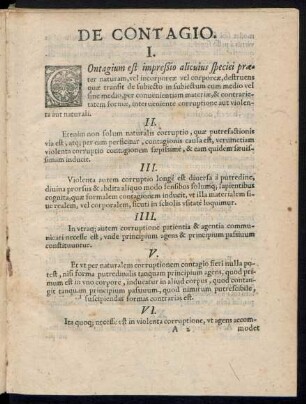 DE CONTAGIO.
I.
COntagium est impressio alicuius speciei præ-
ter naturam, vel incorporeæ vel corporeæ, destruens
quæ transit de subiecto in subiectum cum medio vel
sine medio, per conuenientiam materiæ, & contrarie-
tatem formæ, interueniente corruptione aut violen-
ta aut naturali.
II.
Etenim non solum naturalis corruptio, quæ putrefactionis
via est, atq; per eam perficitur, contagionis causa est, verumetiam
violenta corruptio contagionem sæpissimè, & eam quidem sæuis-
simam inducit.
III.
Violenta autem corruptio longè est diuersa á putredine,
diuina prorsus & abdita aliquo modo sensibus solumq; sapientibus
cognita, quæ formalem contagionem inducit, vt illa materialem si-
ue realem, vel corporalem, sicuti in scholis vsitatè loquimur.
IIII.
In vtraq; autem corruptione patientia & agentia communi-
cari necesse est, vnde principium agens & principium passiuum
constituuntur.
V.
Et vt per naturalem corruptionem contagio fieri nulla po-
test, nisi forma putredinalis tanquam principium agens, quod pri-
mum est in vno corpore, inducatur in aliud corpus, quod contan-
git tanquam principium passiuum, quod nimirum putrescibile,
suscipiendæ formæ contrarias est.
VI.
Ita quoq; necesse est in violenta corruptione, vt agens accom-
A 2 modet